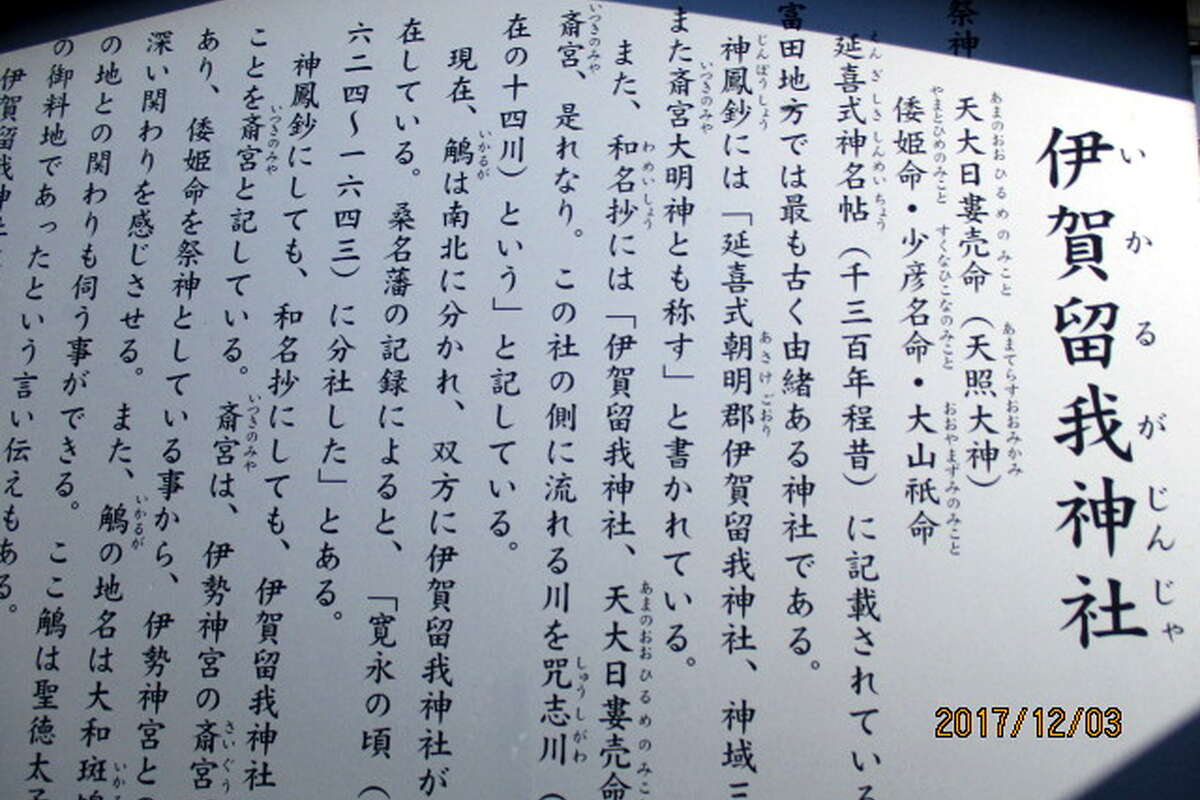 伊賀留我神社
いかるがじんじゃ
祭神
天大日孁売命（天照大神）
あまのおおひるめのみこと あまてらすおおみかみ
倭姫命・少彦名命・大山祇命
やまとひめのみこと すくなひこなのみこと おおやまずみのみこと
延喜式神名帖（千三百年程昔）に記載されている
えんぎしきさしんめいちょう
富田地方では最も古く由緒ある神社である。
神鳳鈔には「延喜式朝明郡伊賀留我神社、神域三
じんぽうしょう あさけごおり
また斎宮大明神とも称す」と書かれている。
いつきのみや
また、和名抄には「伊賀留我神社、天大日孁売命
わめいしょう あまのおおひるめのみこ
斎宮、是れなり。この社の側に流れる川を咒志川（
いつきのみや しゅうしがわ
在の十四川）という」と記している。
現在、鵤は南北に分かれ、双方に伊賀留我神社が
いかるが
在している。桑名藩の記録によると、「寛永の頃（
六二四～一六四三）に分社した」とある。
神鳳鈔にしても、和名抄にしても、伊賀留我神社
ことを斎宮と記している。斎宮は、伊勢神宮の斎宮
いつきのみや いつきのみや さいぐう
あり、倭姫命を祭神としている事から、伊勢神宮と
深い関わりを感じさせる。また、鵤の地名は大和斑
いかるが いか
の地との関わりも伺う事ができる。ここ鵤は聖徳太
の御料地であったという言い伝えもある。
伊賀留我神社
2017/12/03